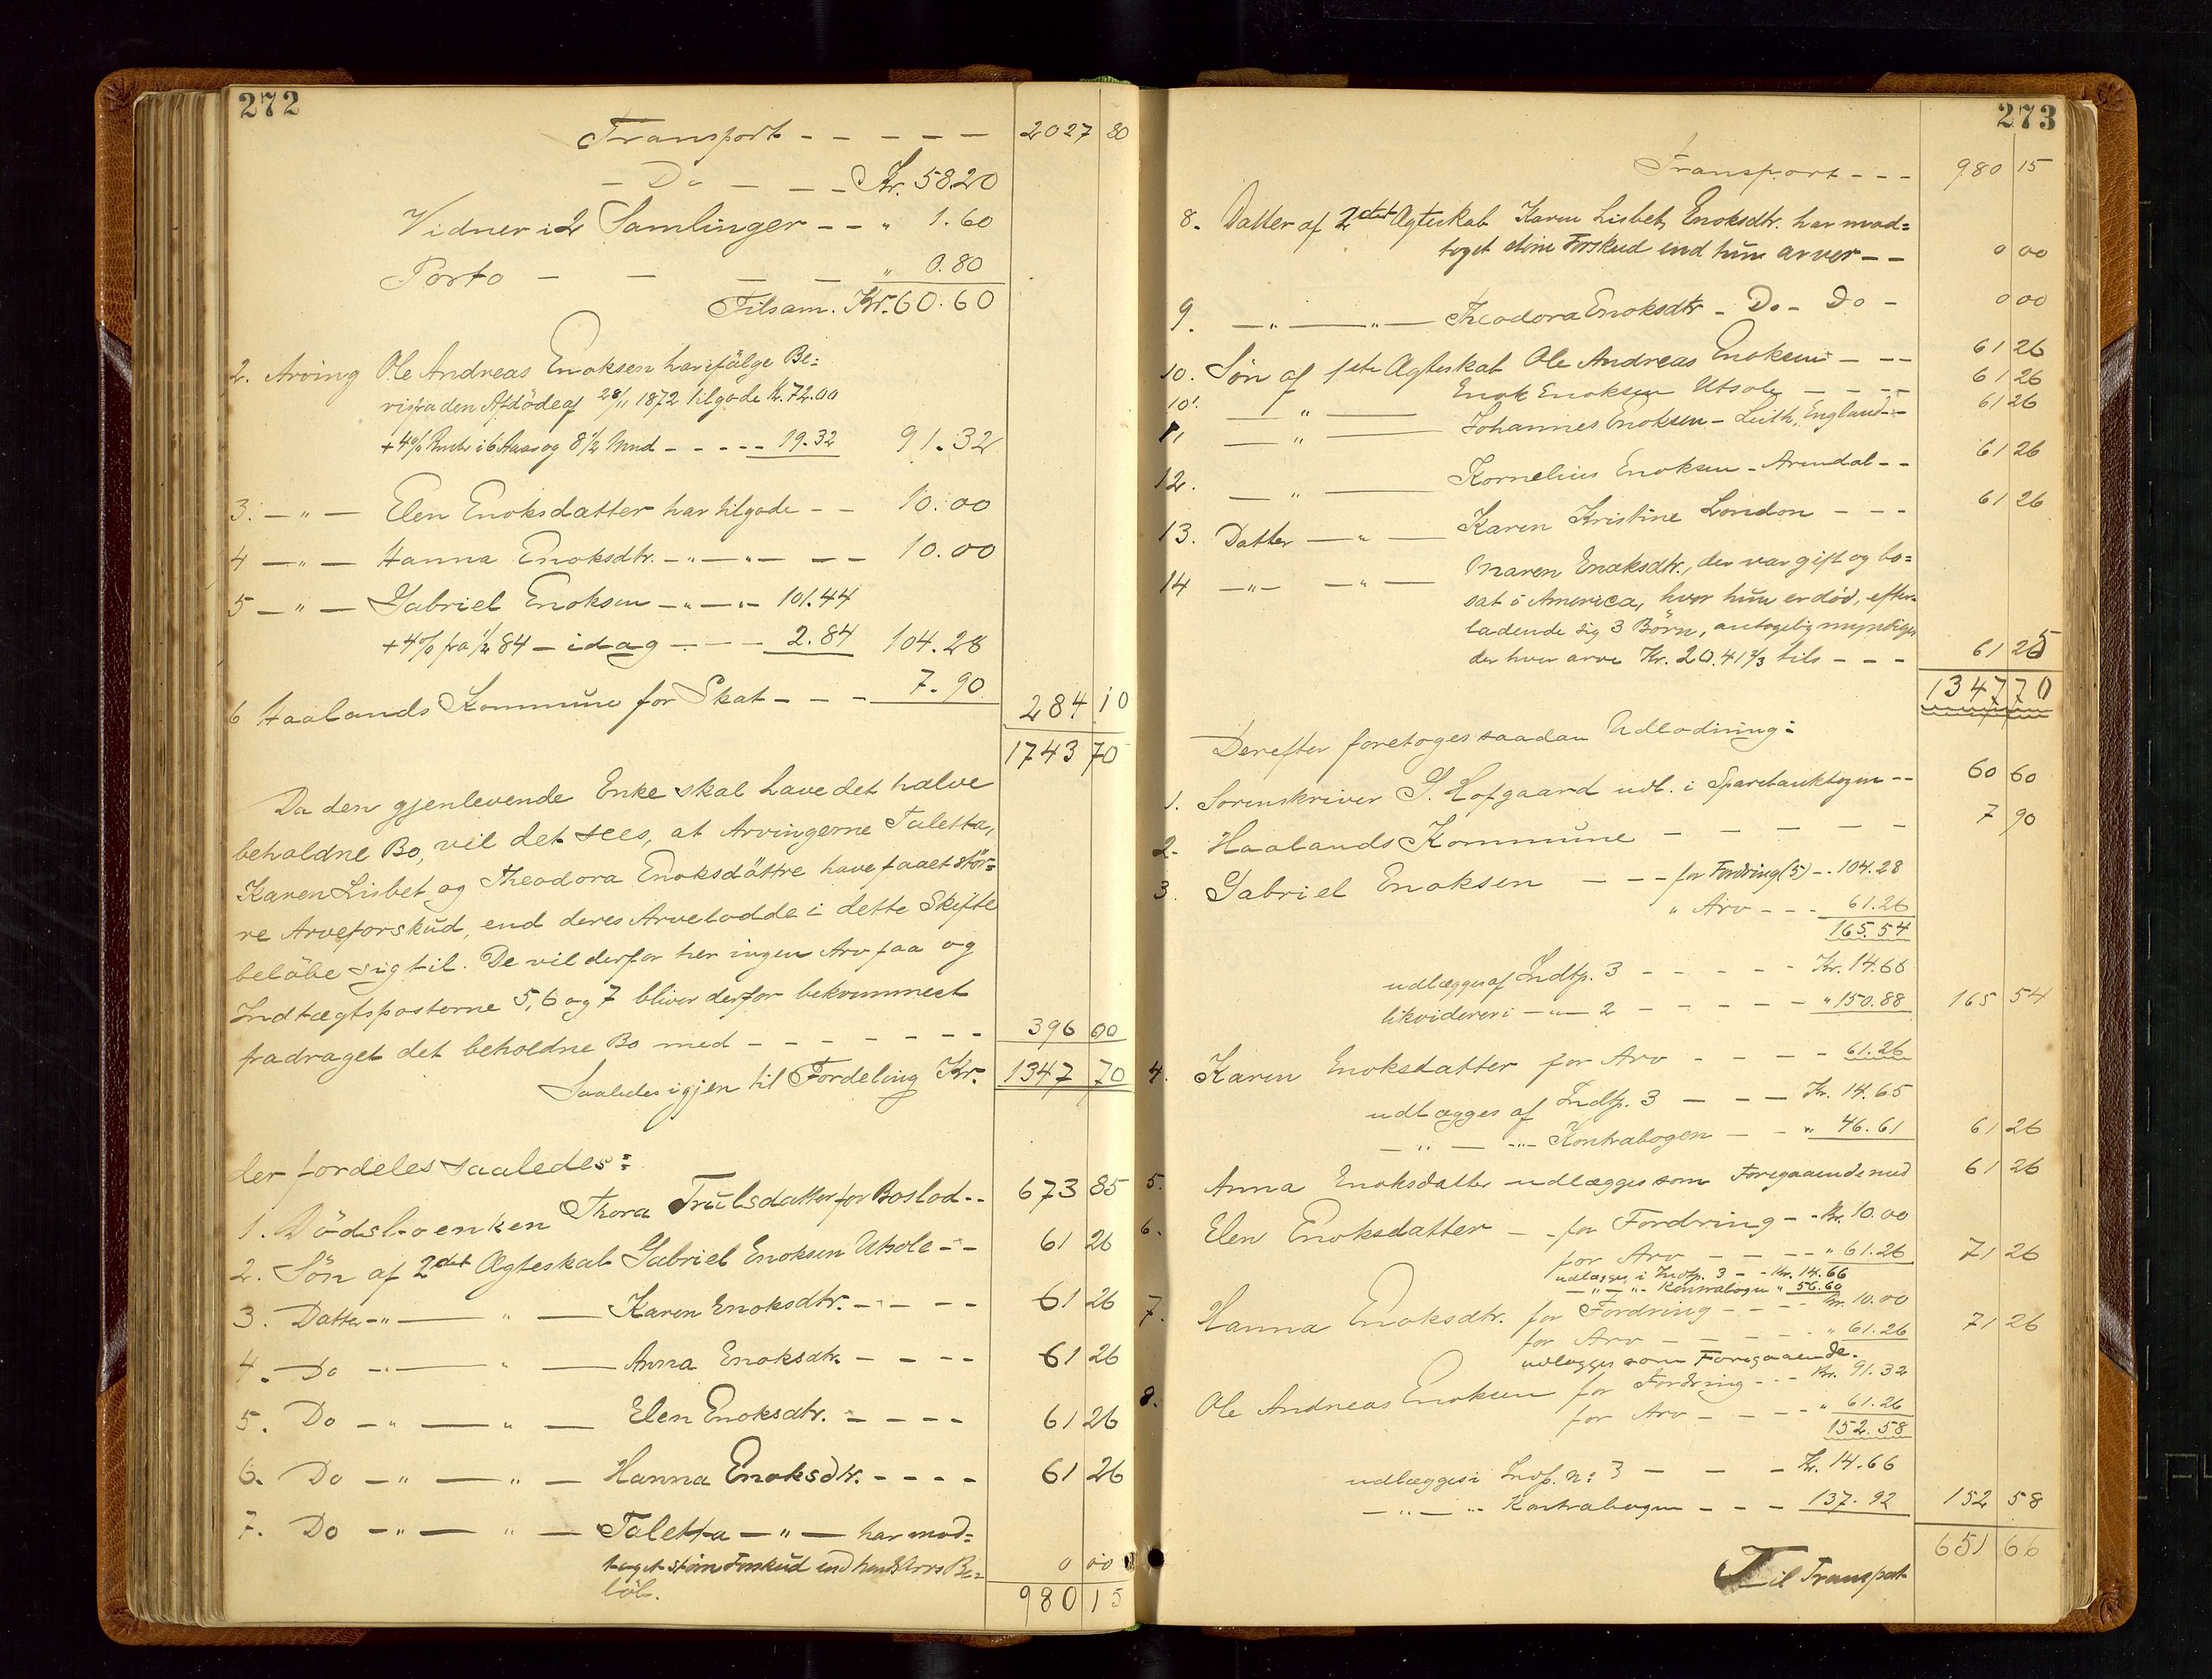 272
Transport - - - - - 2027 80
- Do - - - Kr. 58.20
Vidner i 2 Samlinger - - " 1.60
Porto - - - - " 0.80
Tilsam. Kr. 60.60
2. Arving Ole Andreas Enoksen har ifälge Be=
vis fra den Afdöde af 28/11 1872 tilgode Kr. 72.00
+ 4% Rente i 6 Aar og 8 1/2 Mnd - - - - 19.32 91.32
3. - " - Elen Enoksdatter har tilgode - - 10.00
4 - " - Hanna Enoksdtr. - " - " - - - 10.00
5 - " - Gabriel Enoksen - " - " - 101.44
+ 4% fra 1/2 84 - idag - - - 2.84 104.28
6 Haalands Kommune for Skat - - - 7.90 284 10
1743 70
Da den gjenlevende Enke skal have det halve
beholdne Bo, vil det sees, at Arvingerne Taletta,
Karen Lisbet og Theodora Enoksdöttre have faaet stör=
re Arveforskud, end deres Arvelodde i dette Skifte
belöbe sig til. De vil derfor her ingen Arv faa og
Indtægtsposterne 5, 6 og 7 bliver derfor bekvemmest
fradraget det beholdne Bo med - - - - - - - 396 00
Saaledes igjen til Fordeling Kr. 1347 70
der fordeles saaledes:
1. Dödsboenken Thora Trulsdatter for Boslod - - 673 85
2. Sön af 2det Ægteskab Gabriel Enoksen Utsole - - 61 26
3. Datter - " - " - Karen Enoksdtr. - - - - 61 26
4. Do - " - " - Anna Enoksdtr. - - - - 61 26
5. Do - " - " - Elen Enoksdtr. - - - - 61 26
6. Do - " - " - Hanna Enoksdtr. - - - - 61 26
7. Do - " - " - Taletta - " - har mod=
taget större Forskud end hendes Arvs Be=
löb. 0 00
980 15
273
Transport - - - 980 15
8. Datter af 2det Ægteskab Karen Lisbet Enoksdtr. har mod=
taget större Forskud end hun arver - - 0 00
9. - " - " - Theodora Enoksdtr - Do - Do - 0 00
10. Sön af 1ste Ægteskab Ole Andreas Enoksen - - - 61 26
10'. - " - Enok Enoksen Utsole - - - - 61 26
11 - " - Johannes Enoksen - Leith, England - - 61 26
12. - " - Kornelius Enoksen - Arendal - - 61 26
13. Datter - " - Karen Kristine London - - - 61 26
14 - " - - " - Maren Enoksdtr., der var gift og bo=
sat i America, hvor hun er död, efter-
ladende sig 3 Börn, antagelig myndige
der hver arve Kr. 20.41 2/3 tils - - - 61 25
1347 70
Derefter foretoges saadan Udlodning:
1. Sorenskriver G. Hofgaard udl. i Sparebankbogen - - 60 60
2. Haalands Kommune - - - - - 7 90
3 Gabriel Enoksen - - - for Fordring (5) - - 104.28
" Arv - - - 61.26
165.54
udlægges af Indtp. 3 - - - - - Kr. 14.66
likvideres i - " - 2 - - - - - " 150.88 165 54
4. Karen Enoksdatter for Arv - - - - 61.26
udlægges af Indtp. 3 - - - Kr. 14.65
" - " - Kontrabogen - - " 46.61 61 26
5. Anna Enoksdatter udlægges som Foregaaende med 61 26
6. Elen Enoksdatter - - for Fordring - - Kr. 10.00
for Arv - - - - - " 61.26 71 26
udlægges i Indtp. 3 - - Kr. 14.66
- " - " - Kontrabogen " 56.60
7. Hanna Enoksdtr. for Fordring - - - - Kr. 10.00
for Arv - - - - - " 61.26 71 26
udlægges som Foregaaende.
8. Ole Andreas Enoksen for Fordring - - - Kr. 91.32
for Arv - - - - " 61.26
152.58
udlægges i Indp. No 3 - - - Kr. 14.66
- " - " - Kontrabogen - - - 137.92 152 58
651 66
Til Transport